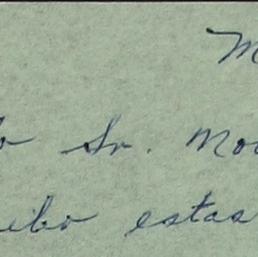 M
o Sr. Mo
ebo estas